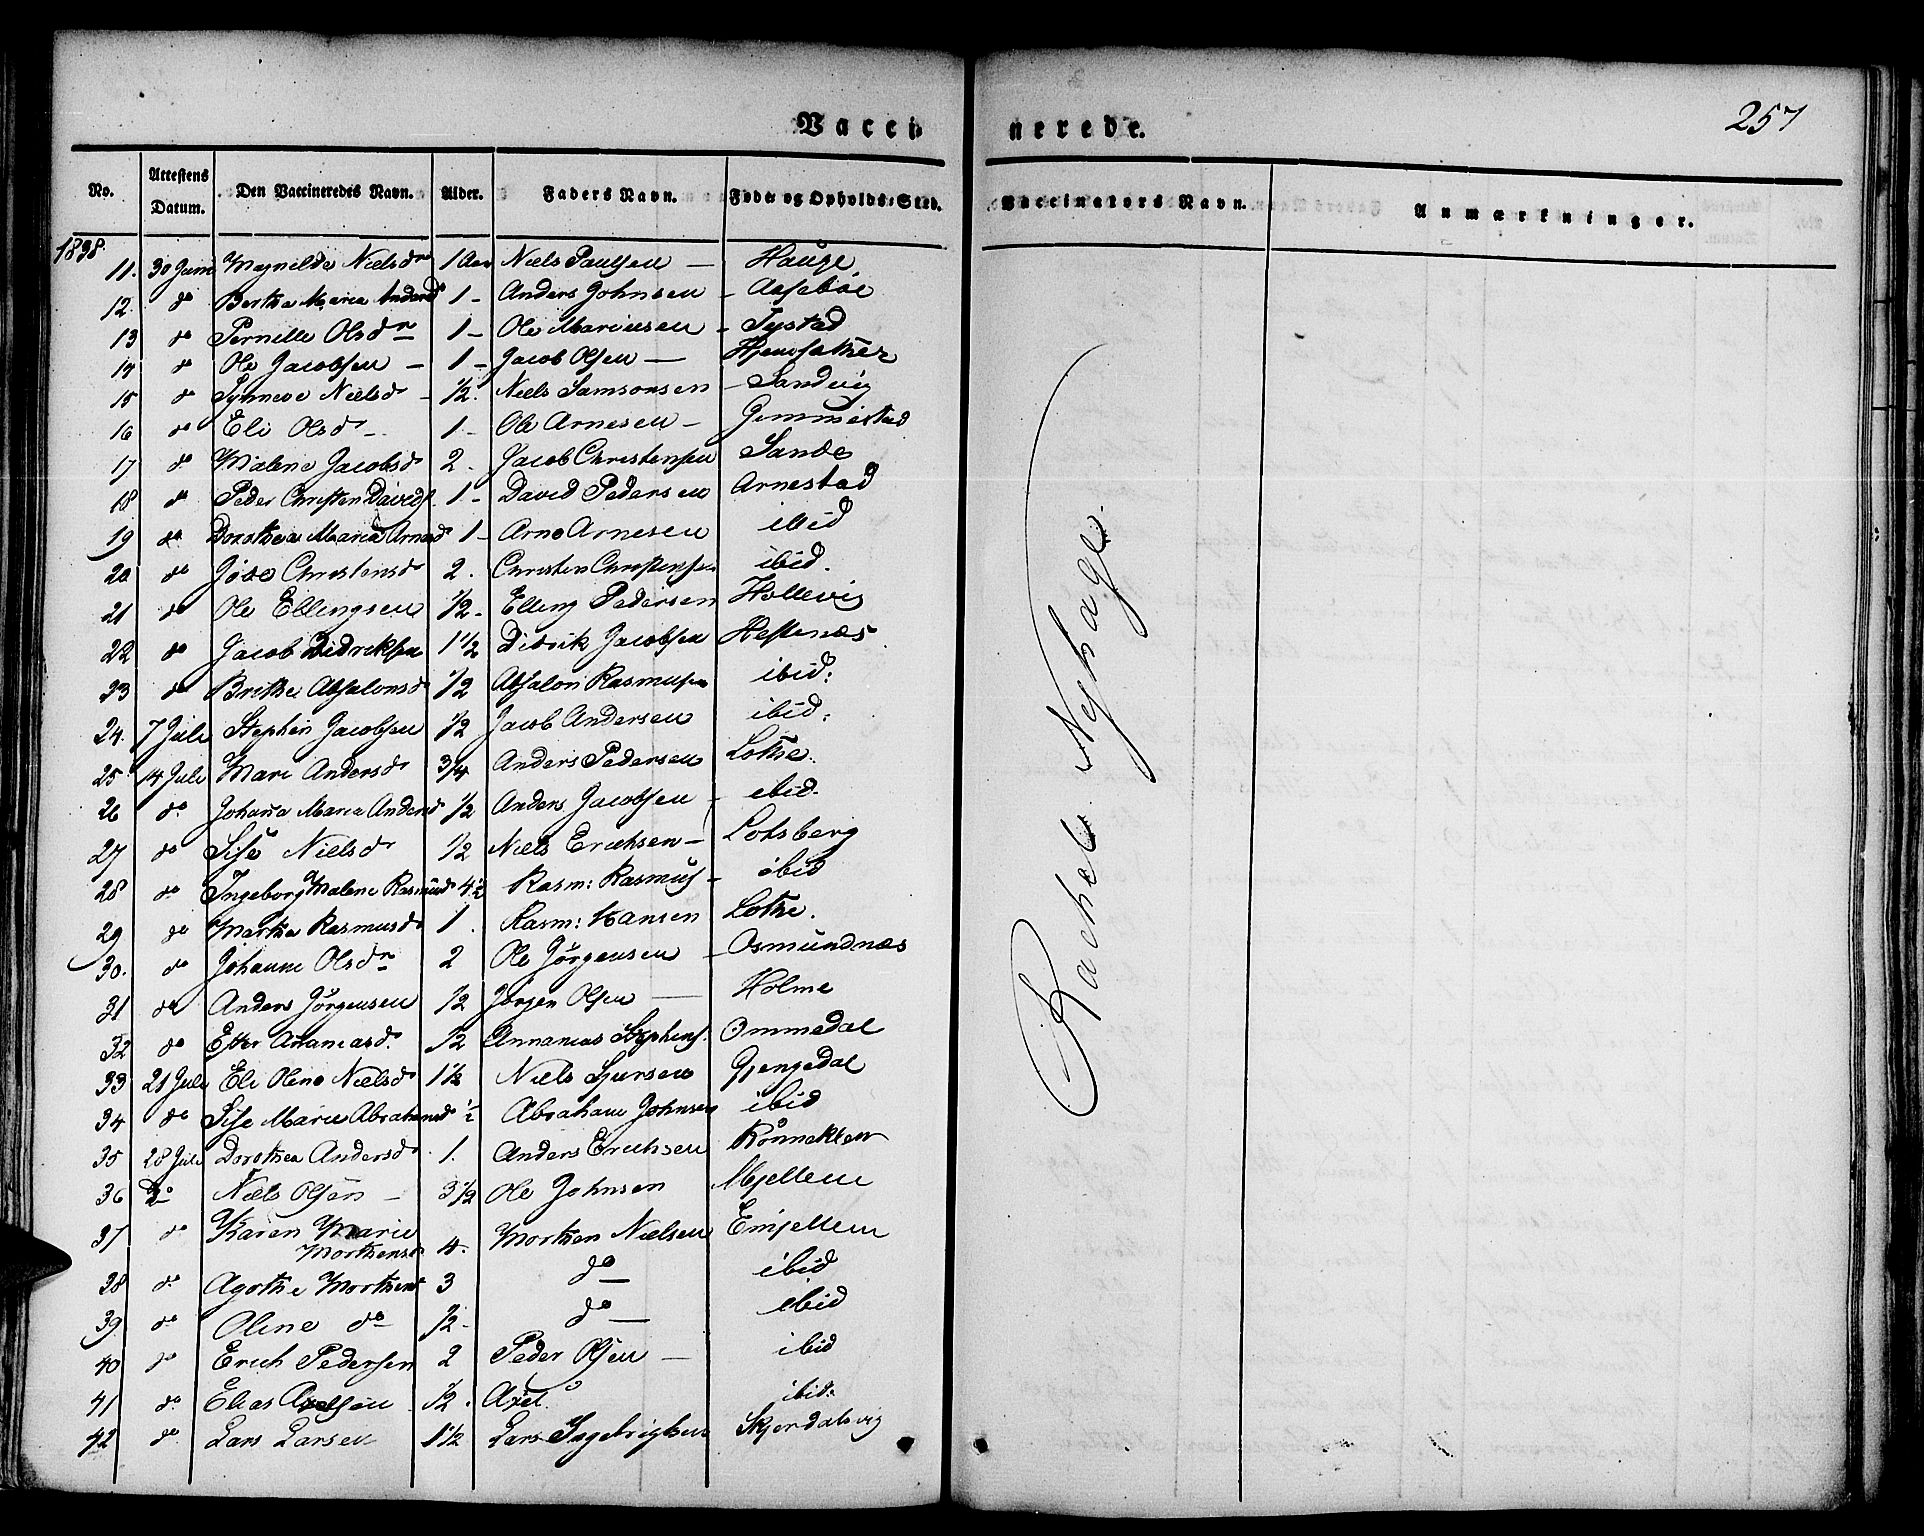 Vaccinerede. 257
No. Attestens Datum. Den Vaccineredes Navn. Alder. Faders Navn. Føde og Opholds-Sted. Vaccinators Navn. Anmærkninger.
1838.
11. 30 Juni Magnilda Nielsdr 1 Aar Niels Paulsen — Hauge
12. do Berthe Maria Andersd 1 - Anders Johnsen - Aasebøe
13 do Pernille Olsdr 1 - Ole Mariusen - Tystad
14 do Ole Jacobsen - 1 - Jacob Olsen — Hjemsæther
15 do Synneve Nielsd - 1/2. Niels Samsonsen - Sandvig
16 do Eli Olsd - 1 - Ole Arnesen - Gimmestad
17 do Malene Jacobsd 2. Jacob Christensen Sande
18 do Peder Christen Davids. 1 - David Pedersen Arnestad
19 do Dorothea Maria Arnesd 1 - Arne Arnesen ibid
20 do Jøse Christensd 2. Christen Christensen ibid.
21 do Ole Ellingsen 1/2 - Elling Pedersen Hollevig
22 do Jacob Didriksen 1 1/2 Didrik Jacobsen Hestenæs
23 do Brithe Absalonsd 1/2 Absalon Rasmusen ibid:
24. 7 Juli Stephen Jacobsen 1/2 Jacob Andersen ibid:
25. 14 Juli Mari Andersd 3/4 Anders Pedersen Lothe.
26 do Johana Maria Andersd 1/2 Anders Jacobsen - ibid.
27 do Sise Nielsd 1/2 Niels Erichsen - Lotsberg
28 do Ingeborg Malene Rasmusd 4 1/2 Rasm: Rasmus - ibid
29 do Marthe Rasmusd 1. Rasm: Hansen Lothe.
30. do Johanne Olsdr 2 Ole Jørgensen - Osmundnæs
31 do Anders Jørgensen 1/2 Jørgen Olsen — Holme
32 do Ester Ananiasd. 1/2 Annanias Stephens. Ommedal
33 21 Juli Eli Oline Nielsd 1 1/2 Niels Sjursen Gjengedal
34 do Sise Marie Abrahamsd 1/2 Abraham Johnsen ibid
35 28 Juli Dorthea Andersd 1. Anders Erichsen Rønnekleiv
36 Do Niels Olsen - 3 1/2 Ole Johnsen Mjellem
37 do Karen Marie Morthensd 4. Morthen Nielsen Emjellem
38 do Agothe Morthensd 3 do ibid
39 do Oline do 1/2 - do ibid
40 do Erich Pedersen 2 Peder Olsen — ibid
41 do Elias Axelsen 1/2. Axel ibid:
42 do Lars Larsen 1 1/2 Lars Ingebrigtsen Skjerdalsvig
Rachel Nyhage.